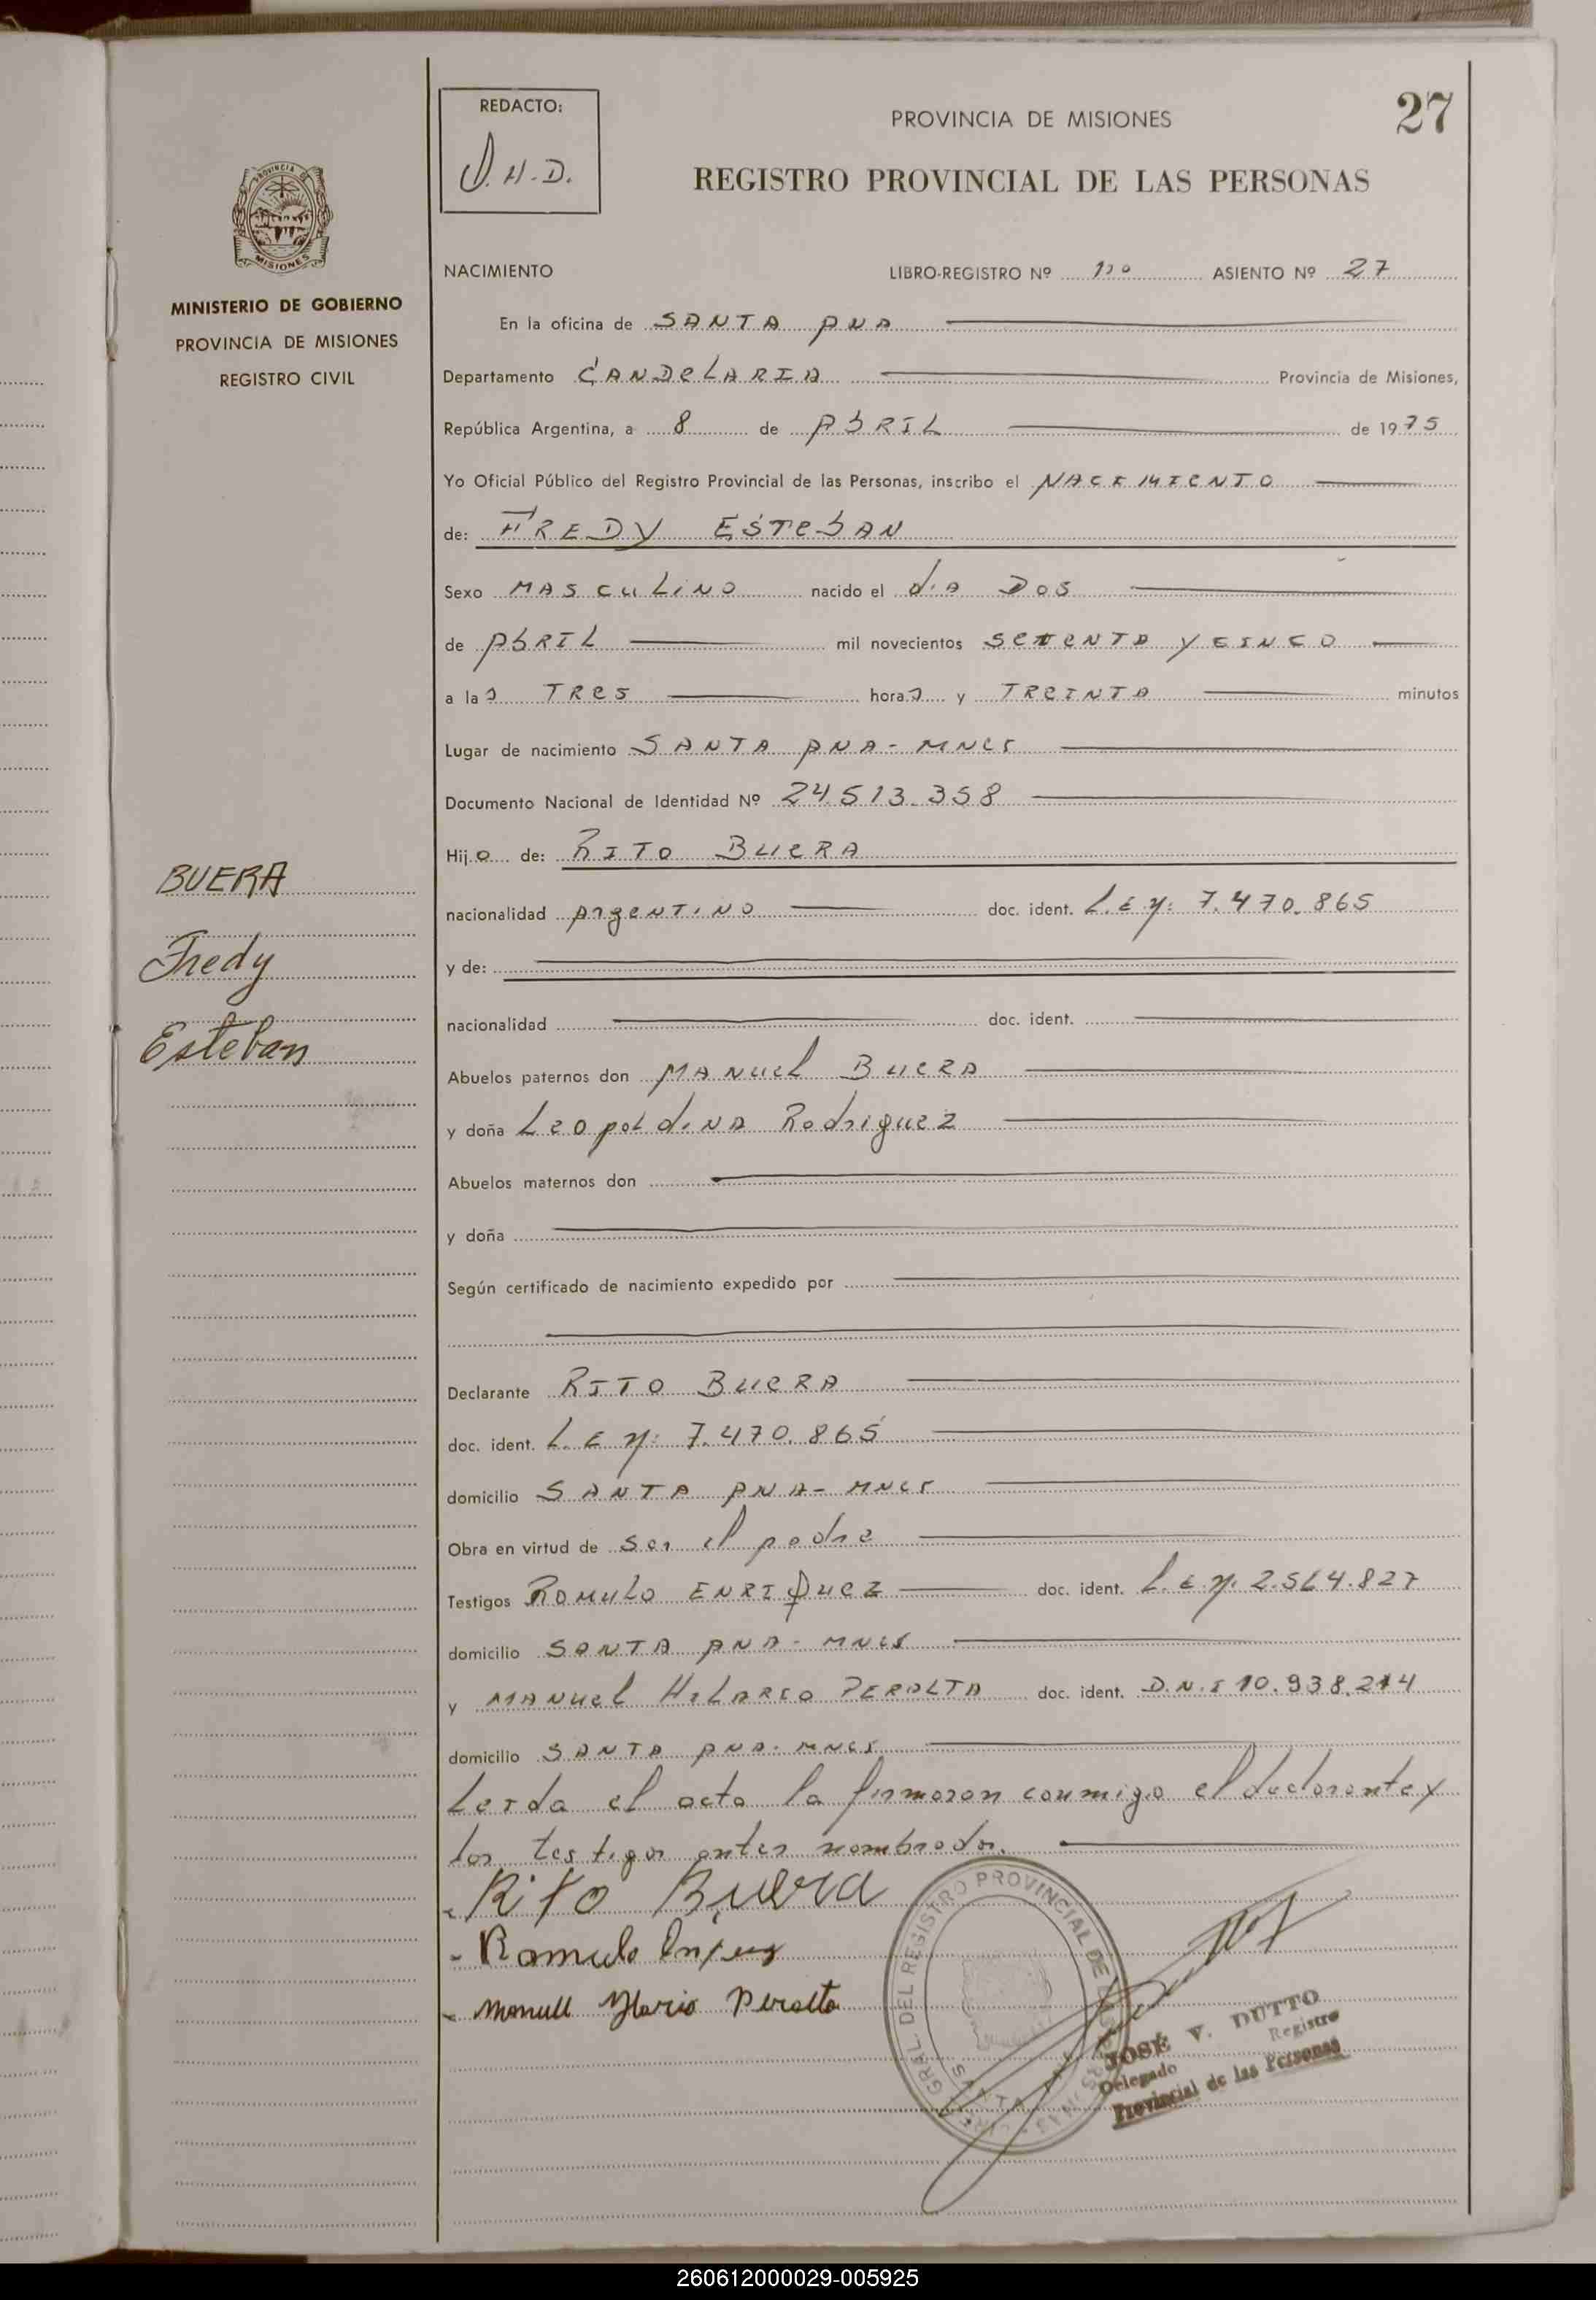 27
REDACTO:
PROVINCIA DE MISIONES
J.H.D.
REGISTRO PROVINCIAL DE LAS PERSONAS
PROVINCIA DE
MISIONES
MINISTERIO DE GOBIERNO
PROVINCIA DE MISIONES
REGISTRO CIVIL
NACIMIENTO LIBRO-REGISTRO Nº 1º ASIENTO Nº 27
En la oficina de SANTA ANA
Departamento CANDELARIA Provincia de Misiones,
República Argentina, a 8 de ABRIL de 1975
Yo Oficial Público del Registro Provincial de las Personas, inscribo el NACIMIENTO
de: FREDY ESTEBAN
Sexo MASCULINO nacido el dia DOS
de ABRIL mil novecientos SETENTA Y CINCO
a las TRES horas y TREINTA minutos
Lugar de nacimiento SANTA ANA - MNES
Documento Nacional de Identidad Nº 24.513.358
Hijo de: RITO BUERA
nacionalidad ARGENTINO doc. ident. L.E Nº: 7.470.865
y de:
nacionalidad doc. ident.
Abuelos paternos don MANUEL BUERA
y doña Leopoldina Rodriguez
Abuelos maternos don
y doña
Según certificado de nacimiento expedido por
Declarante RITO BUERA
doc. ident. L.E Nº: 7.470.865
domicilio SANTA ANA - MNES
Obra en virtud de ser el padre
Testigos ROMULO ENRIQUEZ doc. ident. L.E Nº. 2.564.827
domicilio SANTA ANA - MNES
y MANUEL HILARIO PERALTA doc. ident. D.N.I 10.938.214
domicilio SANTA ANA - MNES
Leida el acta la firmaron conmigo el declarante y
los testigos antes nombrados.
BUERA
Fredy
Esteban
Rito Buera
Romulo
Manuel Ylario Peralta
GRAL. DEL REGISTRO PROVINCIAL DE LAS PERSONAS
JOSÉ V. DUTTO
Delegado Registro
Provincial de las Personas
260612000029-005925